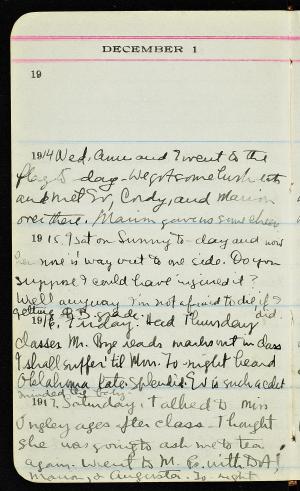 DECEMBER 1
19
1914 Wed, Anne and I went to the
to-day. We got some lush eats
and met Ev, Cordy, and Marion
over there. Marion gave us some
1915. I sat on Sunny to-day and now
nose is way out to one side. Do you
suppose I could have injured it?
Well anyway I'm not afraid to die if I
did.
getting B.B. grade
1916. Friday. Had Thursday
classes. Mr. Bye reads marks out in class
I shall suffer til Mon. To-night heard
Oklahoma Kate. Splendid. Ev is such a dear
minded the baby.
1917. Saturday. Talked to Miss
Ongley ages after class. I thought
she was going to ask me to tea
again. Went to M. Bs. with D.A.,
Marion, & Augusta. To-night